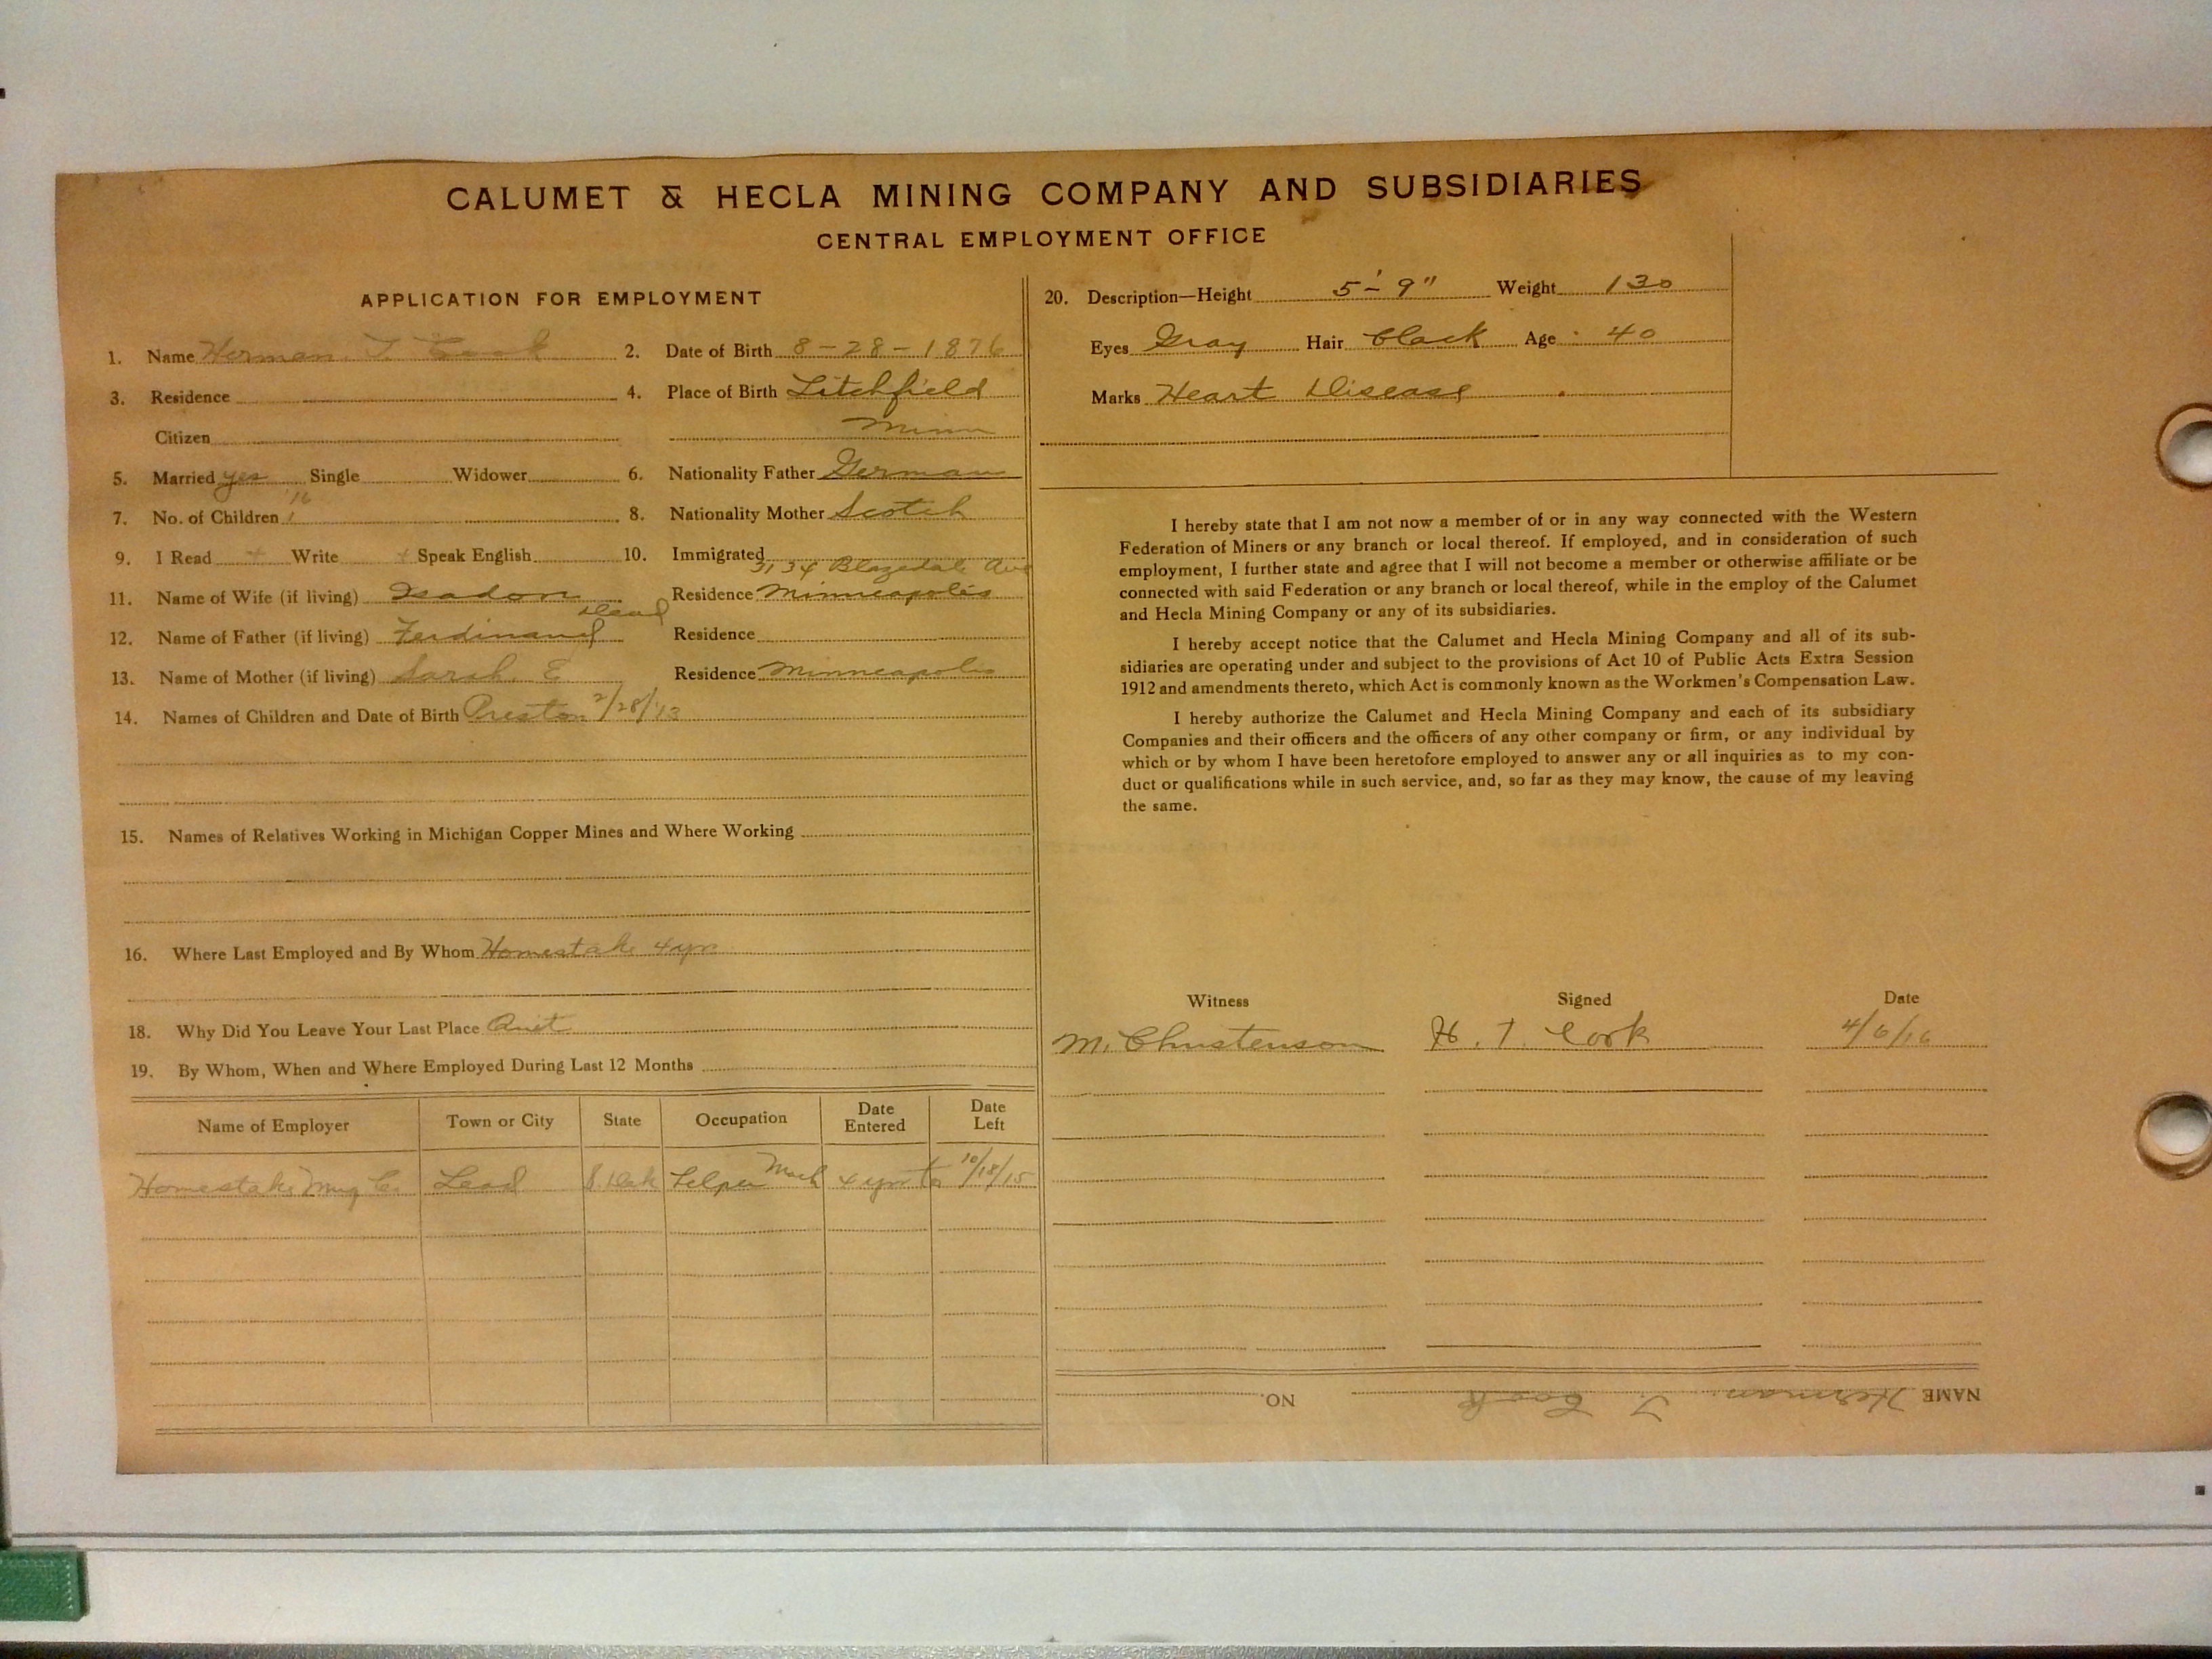 CALUMET & HECLA MINING COMPANY AND SUBSIDIARIES
CENTRAL EMPLOYMENT OFFICE
APPLICATION FOR EMPLOYMENT
1. Name Herman T. Cook 2. Date of Birth 8-28-1876
3. Residence 4. Place of Birth Litchfield
Citizen Minn
5. Married yes Single Widower 6. Nationality Father German
7. No. of Children 1 8. Nationality Mother Scotch
9. I Read + Write + Speak English 10. Immigrated
3134 Ave
11. Name of Wife (if living) Residence Minneapolis
dead
12. Name of Father (if living) Ferdinand Residence
13. Name of Mother (if living) Sarah E Residence Minneapolis
14. Names of Children and Date of Birth Preston 2/28/13
15. Names of Relatives Working in Michigan Copper Mines and Where Working
16. Where Last Employed and By Whom Homestake 4 yrs
18. Why Did You Leave Your Last Place Quit
19. By Whom, When and Where Employed During Last 12 Months
Name of Employer Town or City State Occupation Date Entered Date Left
Homestake Mng Co. Lead S. Dak Helper Mach 4 yrs to 10/18/15
20. Description—Height 5'-9" Weight 130
Eyes Gray Hair black Age 40
Marks Heart Disease
I hereby state that I am not now a member of or in any way connected with the Western
Federation of Miners or any branch or local thereof. If employed, and in consideration of such
employment, I further state and agree that I will not become a member or otherwise affiliate or be
connected with said Federation or any branch or local thereof, while in the employ of the Calumet
and Hecla Mining Company or any of its subsidiaries.
I hereby accept notice that the Calumet and Hecla Mining Company and all of its sub-
sidiaries are operating under and subject to the provisions of Act 10 of Public Acts Extra Session
1912 and amendments thereto, which Act is commonly known as the Workmen's Compensation Law.
I hereby authorize the Calumet and Hecla Mining Company and each of its subsidiary
Companies and their officers and the officers of any other company or firm, or any individual by
which or by whom I have been heretofore employed to answer any or all inquiries as to my con-
duct or qualifications while in such service, and, so far as they may know, the cause of my leaving
the same.
Witness Signed Date
M. Christenson H. T. Cook 4/6/16
NAME Herman T. Cook NO.